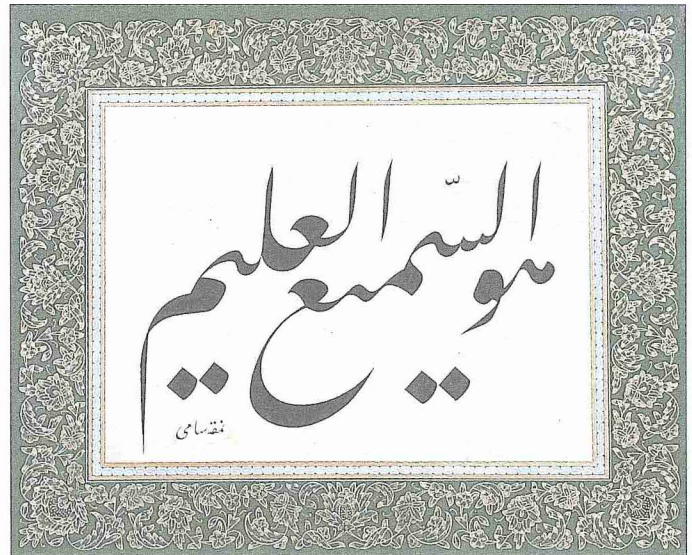 هو السّميع العليم
نمقه سامي